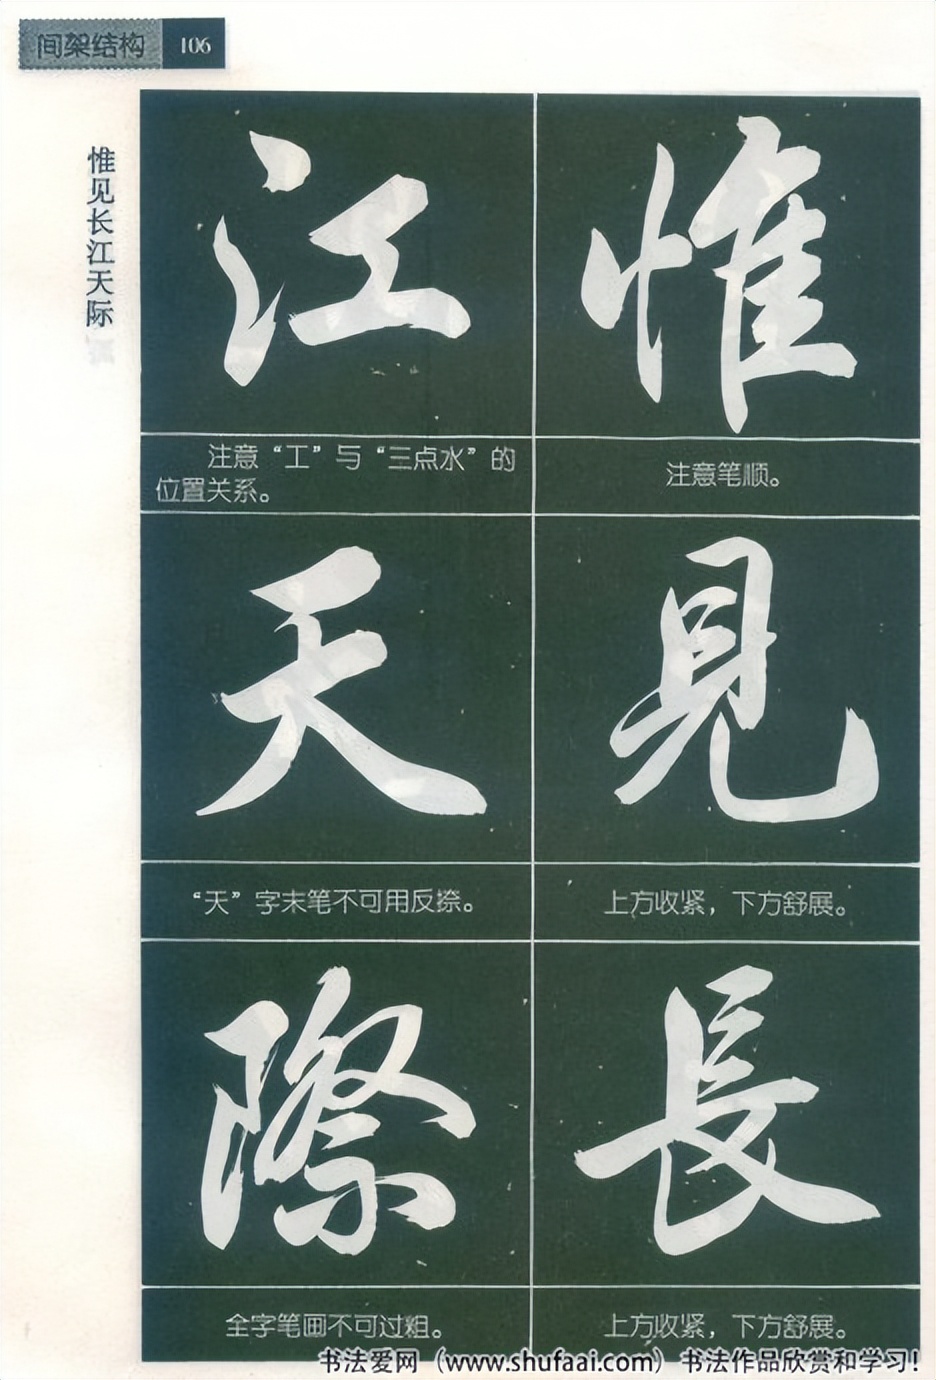 间架结构 106
惟见长江天际
惟
注意笔顺。
見
上方收紧，下方舒展。
長
上方收紧，下方舒展。
江
注意“工”与“三点水”的
位置关系。
天
“天”字末笔不可用反捺。
際
全字笔画不可过粗。
书法爱网（www.shufaai.com）书法作品欣赏和学习！